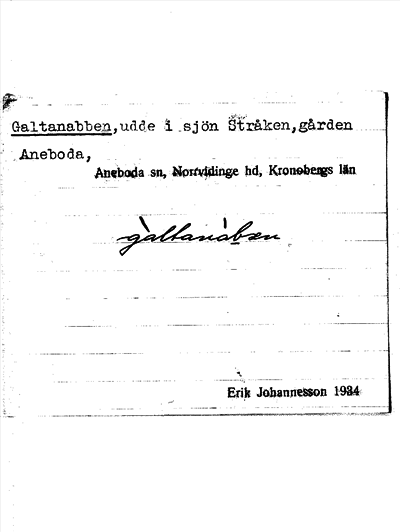 Galtanabben, udde i sjön Stråken, gården
Aneboda,
Aneboda sn, Norrvidinge hd, Kronobergs län
gàltanàben
Erik Johannesson 1934